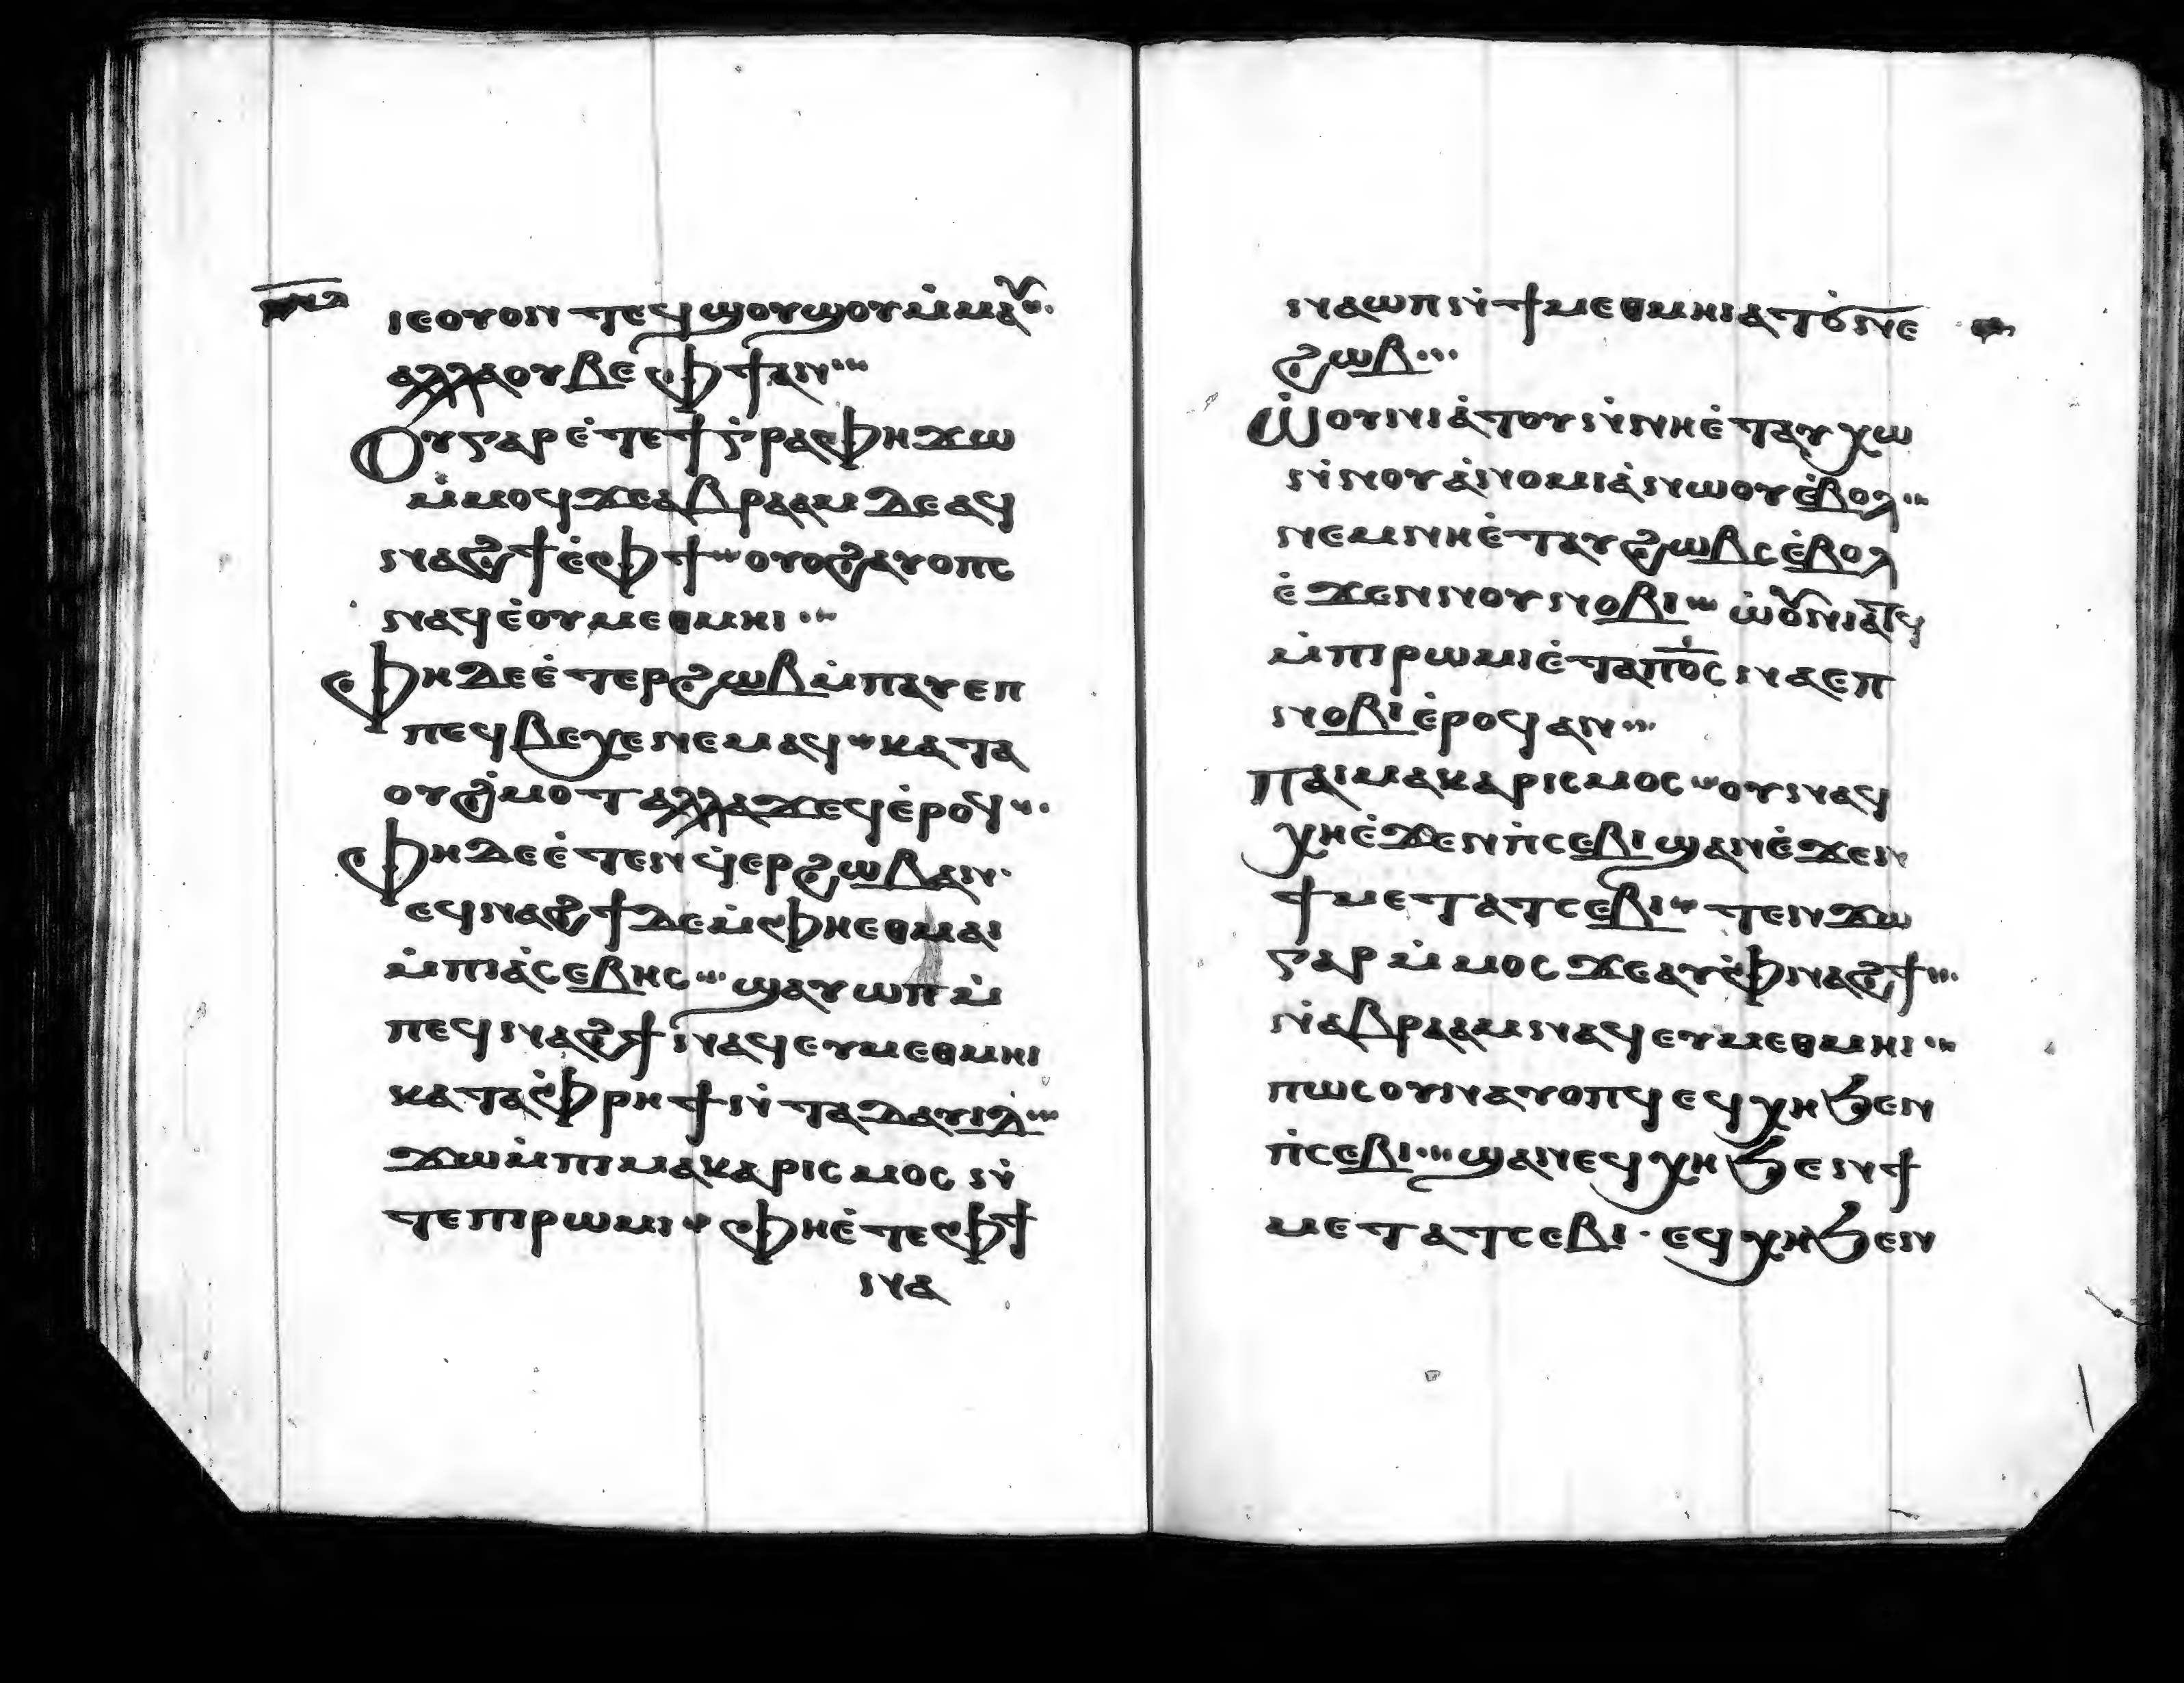 ⲓⲉⲟⲩⲟⲛ ⲧⲉϥϣⲟⲩϣⲟⲩ ⲙ̇ⲙⲁⲩ
ⲁⲗⲗⲁ ⲟⲩⲃⲉ ⲫϯ ⲁⲛ
Ⲟⲩ ⲅⲁⲣ ⲉ̇ⲧⲉ ϯⲅ̇ⲣⲁⲫⲏ ϫⲱ
ⲙ̇ⲙⲟϥ ϫⲉ ⲁⲃⲣⲁⲁⲙ ⲇⲉ ⲁϥ
ⲛⲁϩϯ ⲉ̇ⲫϯ ⲟⲩⲟϩ ⲁⲩⲟⲡⲥ
ⲛⲁϥ ⲉ̇ⲟⲩⲙⲉⲑⲙⲏⲓ
Ⲫⲏ ⲇⲉ ⲉ̇ⲧⲉⲣϩⲱⲃ ⲙ̇ⲡⲁⲩⲉⲡ
ⲡⲉϥⲃⲉⲭⲉ ⲛⲉⲙⲁϥ ⲕⲁⲧⲁ
ⲟⲩϩ̇ⲙⲟⲧ ⲁⲗⲗⲁ ϫⲉϥⲉ̇ⲣⲟϥ
Ⲫⲏ ⲇⲉ ⲉ̇ⲧⲉⲛϥ̇ⲉⲣϩⲱⲃ ⲁⲛ
ⲉϥⲛⲁϩϯ ⲇⲉ ⲙ̇ⲫⲏ ⲉⲑⲙⲁⲓ
ⲙ̇ⲡⲓⲁ̇ⲥⲉⲃⲏⲥ ϣⲁⲩⲱⲡ ⲙ̇
ⲡⲉϥⲛⲁϩϯ ⲛⲁϥ ⲉⲩⲙⲉⲑⲙⲏⲓ
ⲕⲁⲧⲁ ⲫ̇ⲣⲏϯ ⲛ̇ⲧⲁ ⲇⲁⲩⲓⲇ
ϫⲱ ⲙ̇ⲡⲓⲙⲁⲕⲁⲣⲓⲥⲙⲟⲥ ⲛ̇
ⲧⲉ ⲡⲓⲣⲱⲙⲓ ⲫⲏ ⲉ̇ⲧⲉ ⲫϯ
ⲛⲁ
ⲛⲁⲱⲡ ⲛ̇ϯⲙⲉⲑⲙⲏⲓ ⲁⲧϭ̇ⲛⲉ
ϩⲱⲃ
Ⲱ̇ⲟⲩⲛⲓⲁ̇ⲧⲟⲩ ⲛ̇ⲛⲏ ⲉ̇ⲧⲁⲩⲭⲱ
ⲛ̇ⲛⲟⲩⲁ̇ⲛⲟⲙⲓⲁ̇ ⲛⲱⲟⲩ ⲉ̇ⲃⲟⲗ
ⲛⲉⲙ ⲛⲏ ⲉ̇ⲧⲁⲩϩⲱⲃⲥ ⲉ̇ⲃⲟⲗ
ⲉ̇ϫⲉⲛ ⲛⲟⲩⲛⲟⲃⲓ ⲱ̇ⲟⲩⲛⲓⲁⲧϥ
ⲙ̇ⲡⲓⲣⲱⲙⲓ ⲉ̇ⲧⲁ ⲡⲟ̅ⲥ̅ ⲛⲁⲉⲡ
ⲛⲟⲃⲓ ⲉ̇ⲣⲟϥ ⲁⲛ
ⲡⲁⲓⲙⲁⲕⲁⲣⲓⲥⲙⲟⲥ ⲟⲩⲛ ⲁϥ
ⲭⲏ ⲉ̇ϫⲉⲛ ⲡ̇ⲥⲉⲃⲓ ϣⲁⲛ ⲉ̇ϫⲉⲛ
ϯⲙⲉⲧⲁⲧⲥⲉⲃⲓ ⲧⲉⲛϫⲱ
ⲅⲁⲣ ⲙ̇ⲙⲟⲥ ϫⲉ ⲁⲩⲉ̇ⲫⲛⲁϩϯ
ⲛ̇ⲁⲃⲣⲁⲁⲙ ⲛⲁϥ ⲉⲩⲙⲉⲑⲙⲏⲓ
ⲡⲱⲥ ⲟⲩⲛ ⲁⲩⲟⲡϥ ⲉϥⲭⲏ ϧⲉⲛ
ⲡ̇ⲥⲉⲃⲓ ϣⲁⲛ ⲉϥⲭⲏ ϧⲉⲛ ϯ
ⲙⲉⲧⲁⲧⲥⲉⲃⲓ · ⲉϥⲭⲏ ϧⲉⲛ